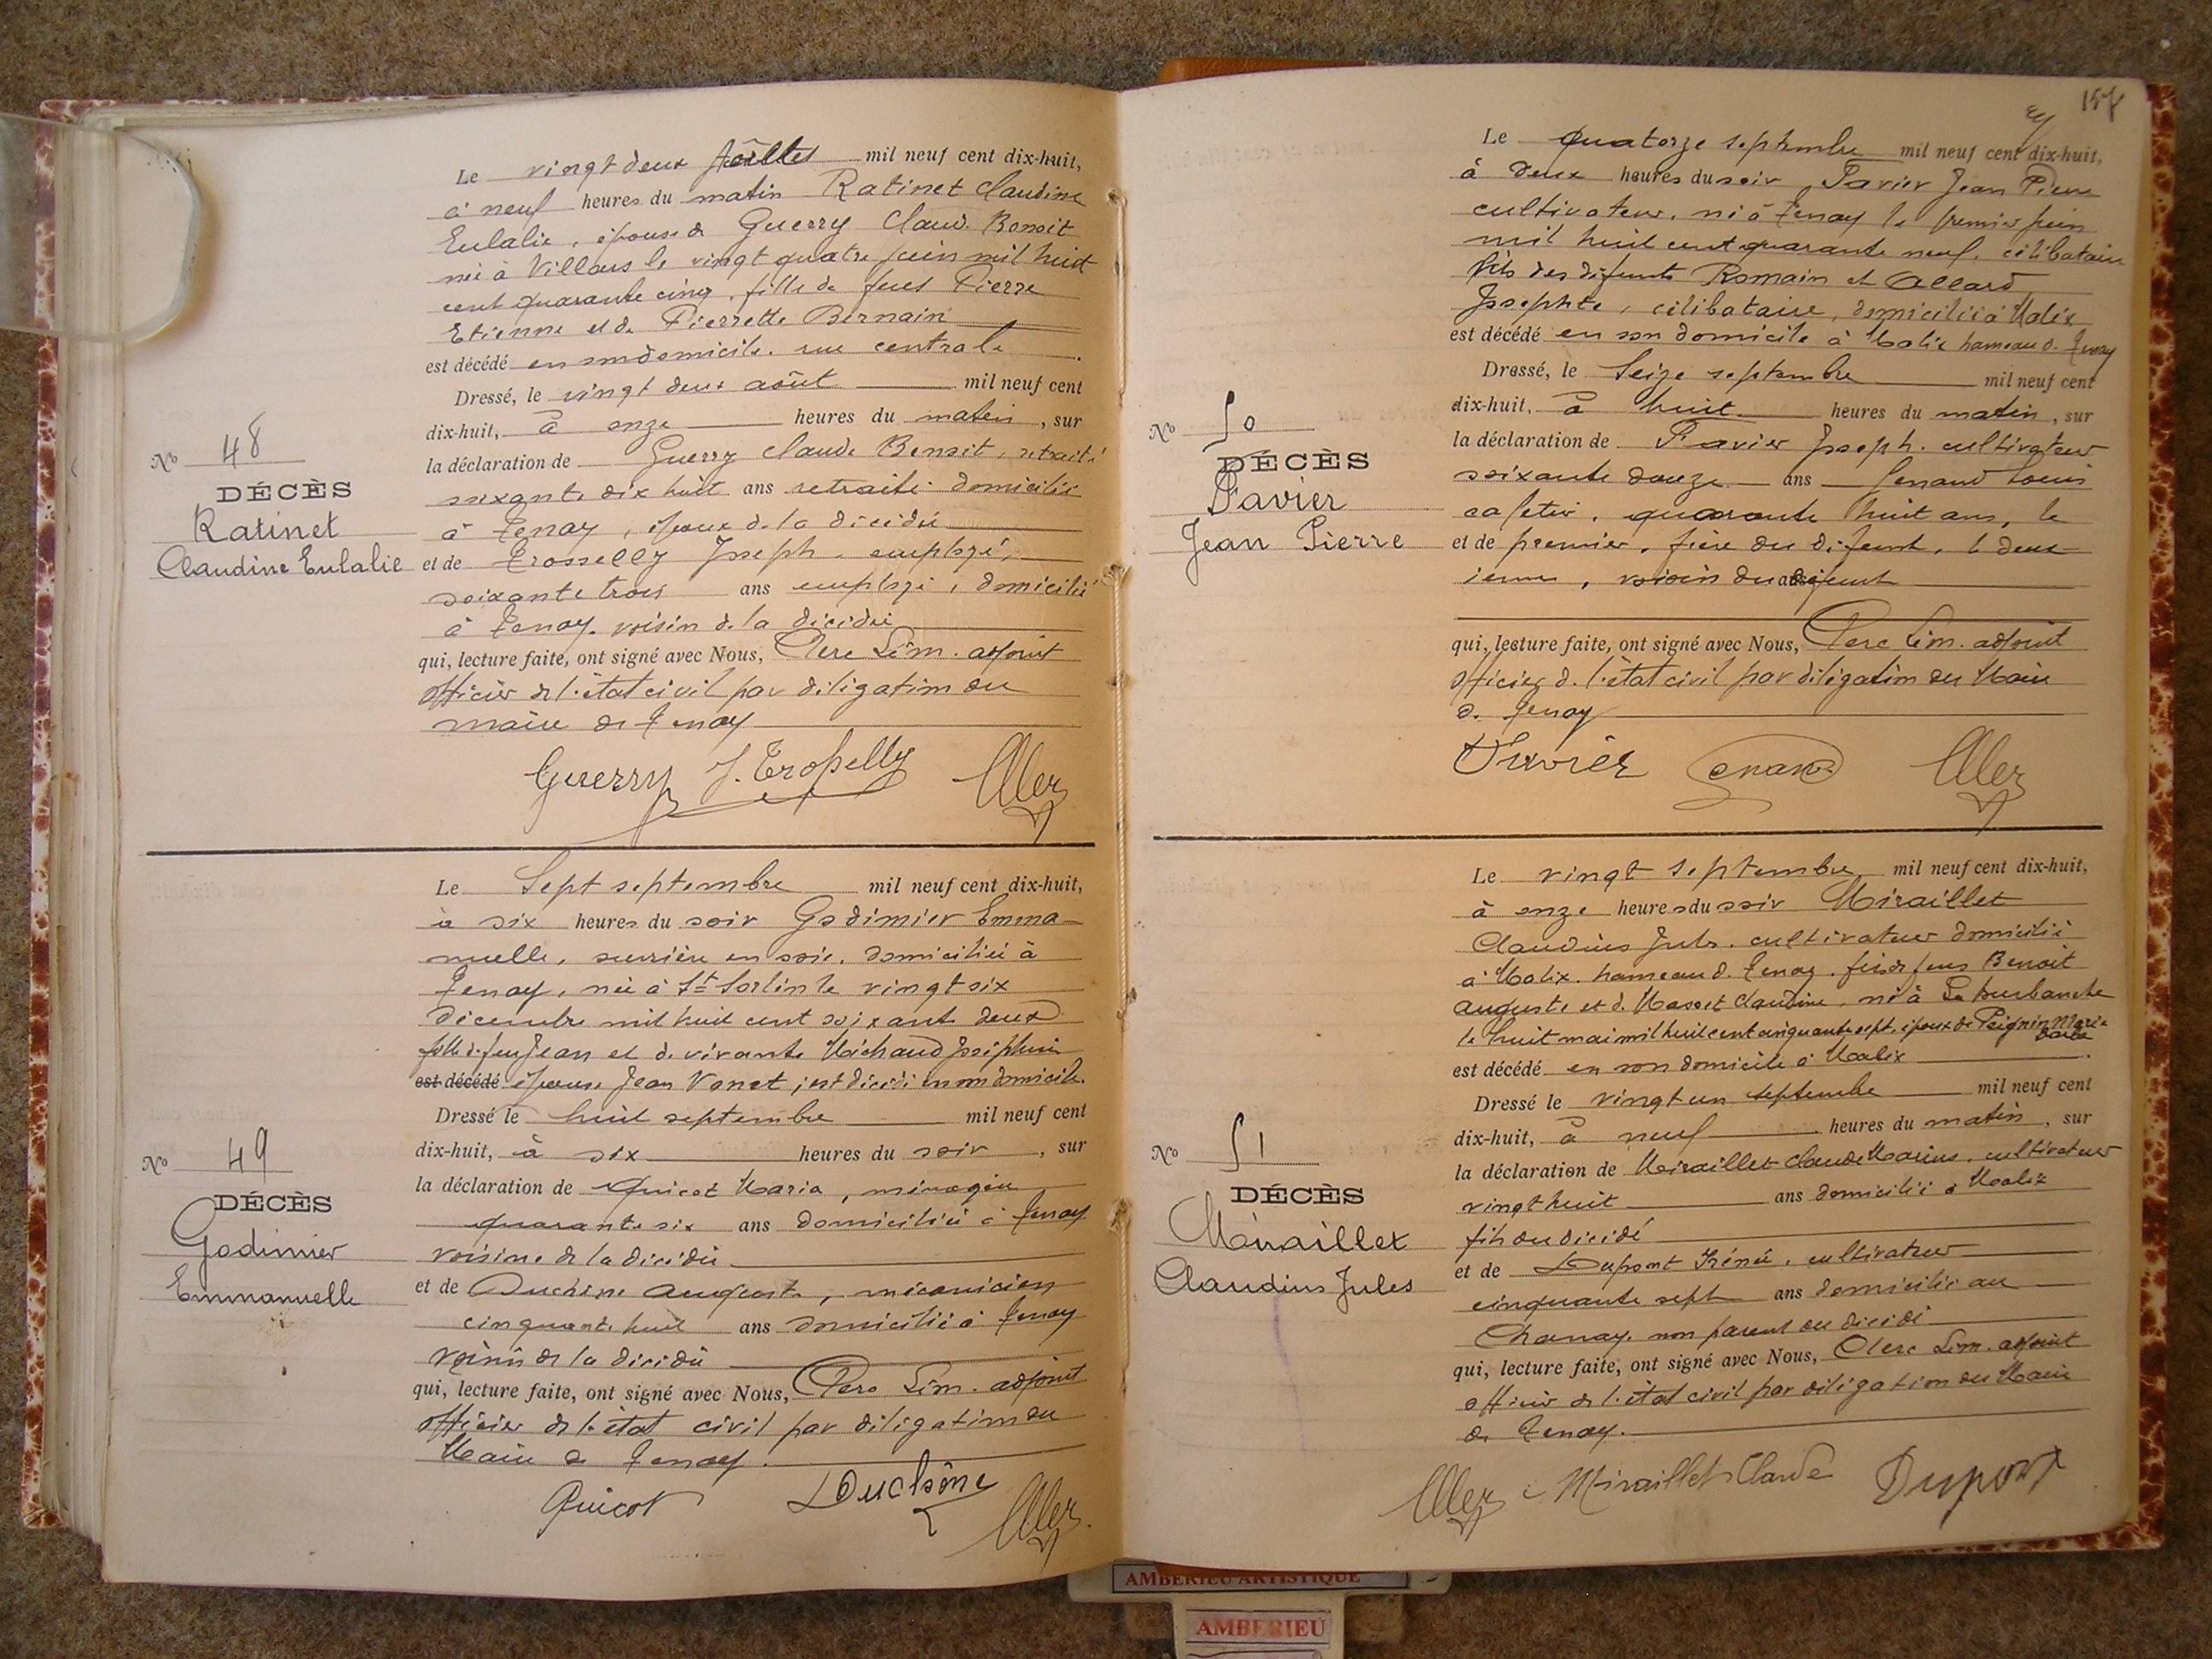 Le vingt deux mil neuf cent dix-huit,
à neuf heures du matin Ratinet Claudine
Eulalie, épouse de Guerry Claud. Benoit
née à Villars le vingt quatre juin mil huit
cent quarante cinq, fille de feus Pierre
Etienne et de Pierrette Bernain
est décédé en son domicile. rue centrale.
Dressé, le vingt deux août mil neuf cent
dix-huit, à onze heures du matin, sur
No 48
DÉCÈS
Ratinet
Claudine Eulalie
la déclaration de Guerry Claude Benoit, retraité
soixante dix huit ans retraité domicilié
à Tenay, époux de la décédée
et de Trosselly Joseph. employé,
soixante trois ans employé, domicilié
à Tenay. voisin de la décédée
qui, lecture faite, ont signé avec Nous, Clerc Sim. adjoint
officier de l'état civil par délégation du
maire de Tenay
Guerry J. Trosselly Clerc
Le Sept septembre mil neuf cent dix-huit,
à six heures du soir Godimier Emma-
nuelle, ouvrière en soie, domiciliée à
Tenay, née à St Sorlin le vingt six
décembre mil huit cent soixante deux
fille de feu Jean et de vivante Michaud Joséphine
est décédé épouse Jean Vonet, est décédé en son domicile.
Dressé le huit septembre mil neuf cent
dix-huit, à six heures du soir, sur
No 49
DÉCÈS
Godimier
Emmanuelle
la déclaration de Quicot Maria, ménagère
quarante six ans domiciliée à Tenay
voisine de la décédée
et de Duchêne Auguste, mécanicien
cinquante huit ans domicilié à Tenay
voisin de la décédée
qui, lecture faite, ont signé avec Nous, Clerc Sim. adjoint
officier de l'état civil par délégation du
Maire de Tenay.
Quicot Duchêne Clerc
157
Le quatorze septembre mil neuf cent dix-huit,
à deux heures du soir Favier Jean Pierre
cultivateur, né à Tenay le premier juin
mil huit cent quarante neuf, célibataire
fils des défunts Romain et Allard
Josephte, célibataire, domicilié à Malix
est décédé en son domicile à Malix hameau d. Tenay
Dressé, le Seize septembre mil neuf cent
dix-huit, à huit heures du matin, sur
No 50
DÉCÈS
Favier
Jean Pierre
la déclaration de Favier Joseph. cultivateur
soixante douze ans Louis
cafetier, quarante huit ans, le
et de premier, frère du défunt, le deux-
ième, voisin du défunt
qui, lecture faite, ont signé avec Nous, Clerc Sim. adjoint
officier d. l'état civil par délégation du Maire
d. Tenay
Favier Clerc
Le vingt septembre mil neuf cent dix-huit,
à onze heures du soir Miraillet
Claudius Jules. cultivateur domicilié
à Malix. hameau d. Tenay. fils de feus Benoit
Auguste et d. Masset Claudine, né à La Burbanche
le huit mai mil huit cent cinquante sept, époux de Peignin Marie
est décédé en son domicile à Malix
Dressé le vingt un septembre mil neuf cent
dix-huit, à neuf heures du matin, sur
No 51
DÉCÈS
Miraillet
Claudius Jules
la déclaration de Miraillet Claude Marius, cultivateur
vingt huit ans domicilié à Malix
fils du décédé
et de Dupont Irénée, cultivateur
cinquante sept ans domicilié au
Chanay. non parent du décédé
qui, lecture faite, ont signé avec Nous, Clerc Sim. adjoint
officier de l'état civil par délégation du Maire
de Tenay.
Clerc Miraillet Claude Dupont
AMBERIEU ARTISTIQUE
AMBERIEU